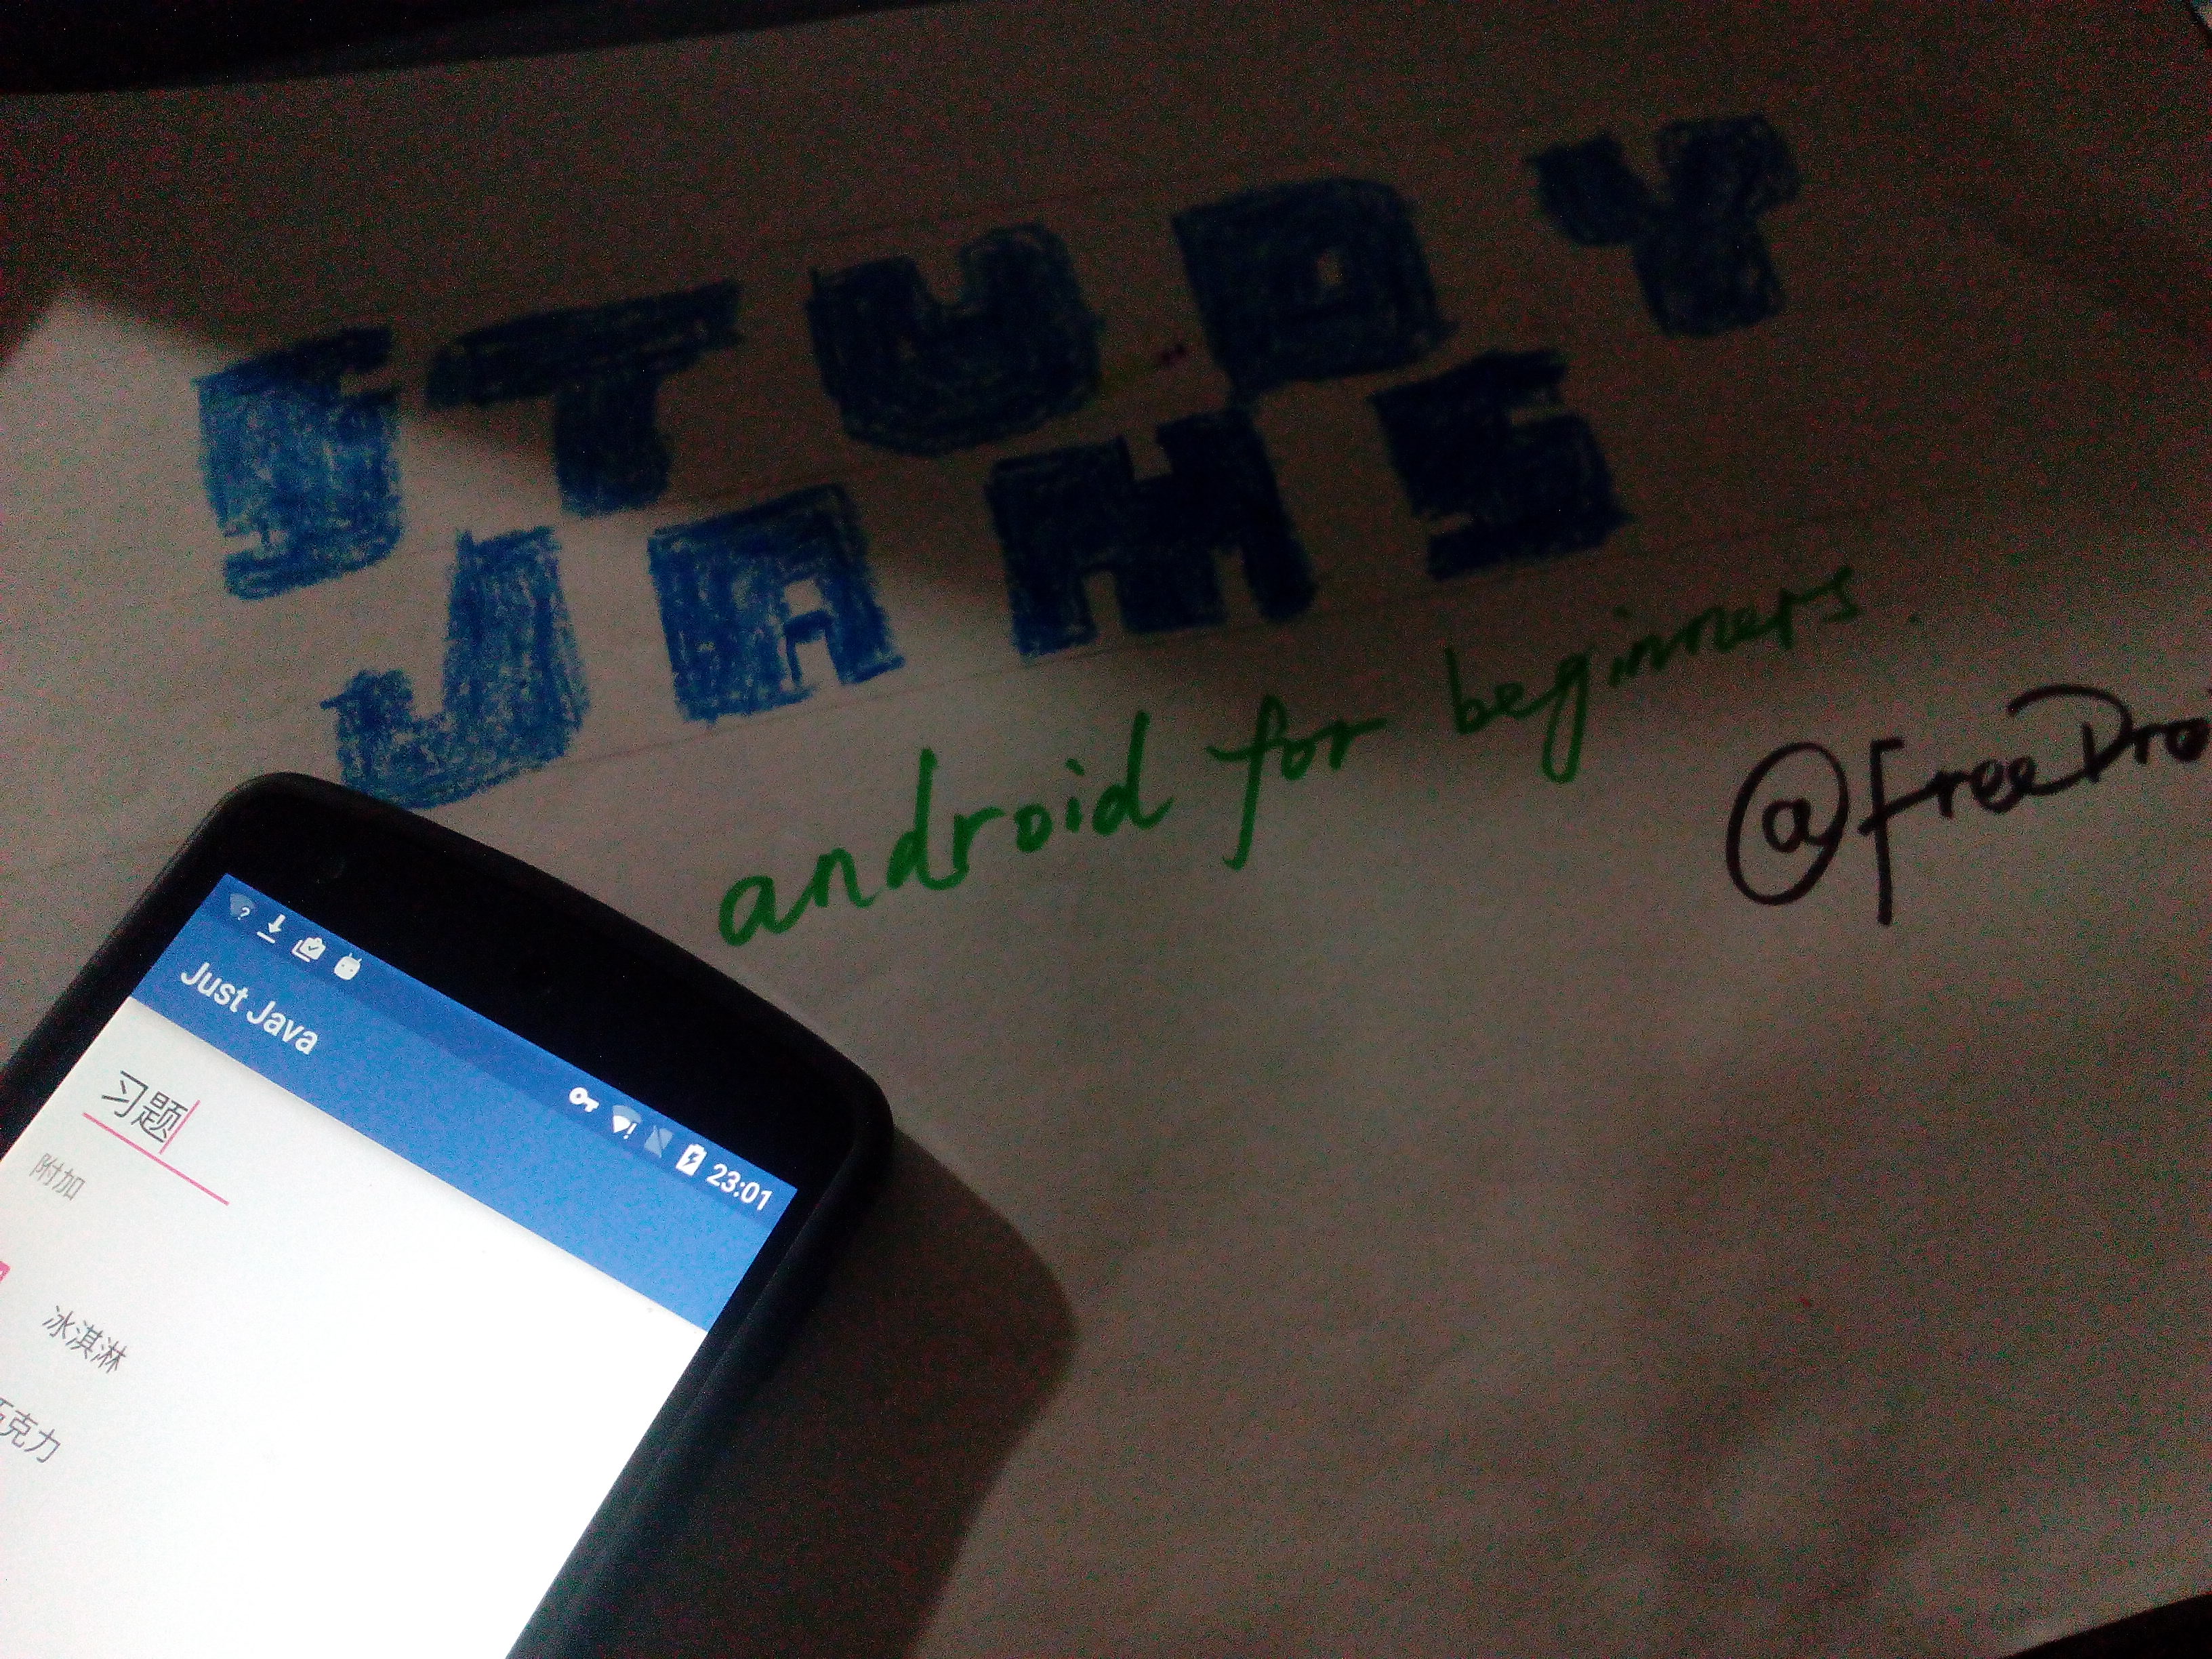 STUDY
JAMS
android for beginners.
@freeDro
Just Java
23:01
习题
附加
冰淇淋
巧克力